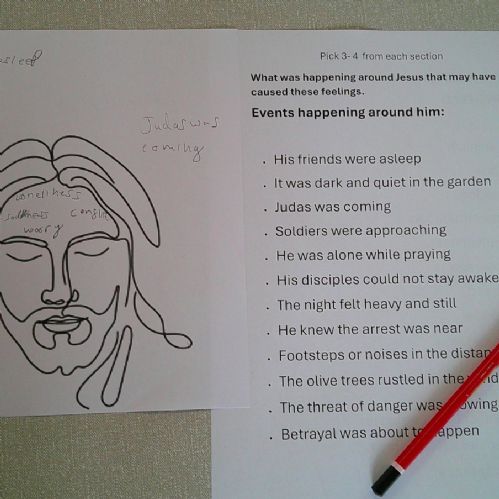 Judas was
coming
loneliness
sadness
worry
Pick 3- 4 from each section
What was happening around Jesus that may have
caused these feelings.
Events happening around him:
. His friends were asleep
. It was dark and quiet in the garden
. Judas was coming
. Soldiers were approaching
. He was alone while praying
. His disciples could not stay awake
. The night felt heavy and still
. He knew the arrest was near
. Footsteps or noises in the distan
. The olive trees rustled in the
. The threat of danger was
. Betrayal was about to